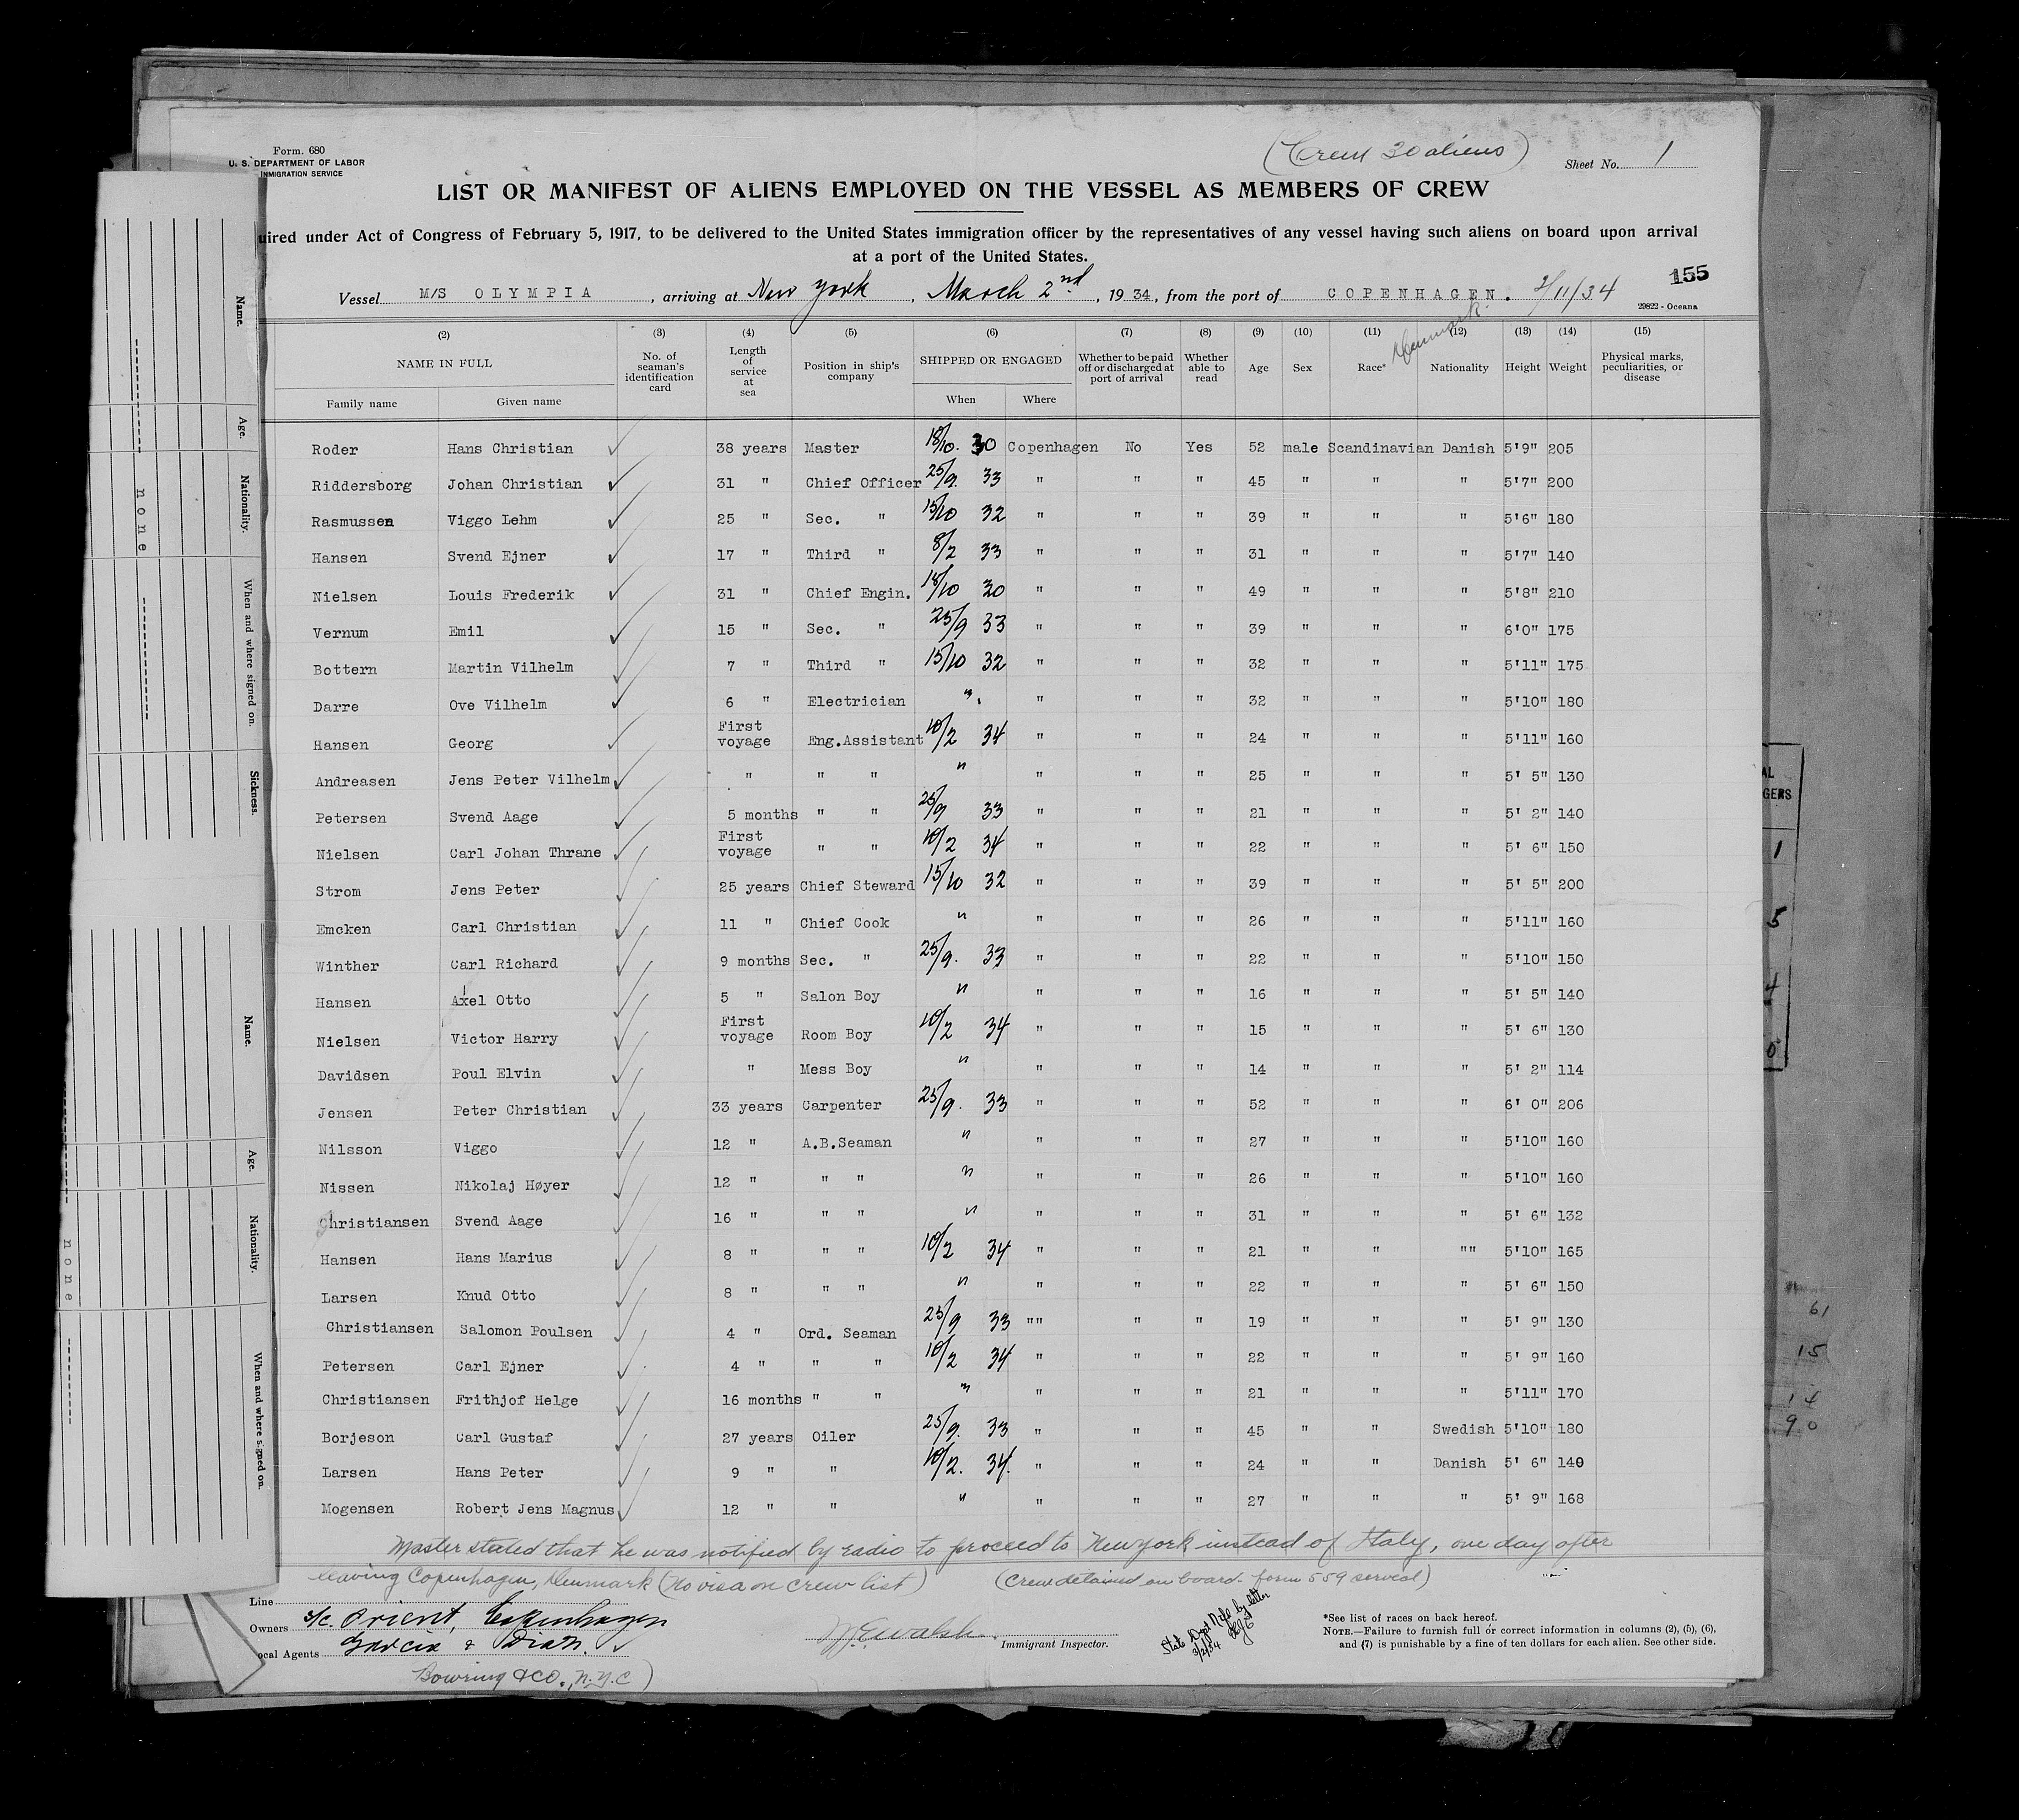 Form. 680
U. S. DEPARTMENT OF LABOR
IMMIGRATION SERVICE
(Crew 30 aliens)
Sheet No. 1
LIST OR MANIFEST OF ALIENS EMPLOYED ON THE VESSEL AS MEMBERS OF CREW
uired under Act of Congress of February 5, 1917, to be delivered to the United States immigration officer by the representatives of any vessel having such aliens on board upon arrival
at a port of the United States.
155
Vessel M/S OLYMPIA, arriving at New York, March 2nd, 1934, from the port of COPENHAGEN. 2/11/34
Denmark.
29822 - Oceana
(2) (3) (4) (5) (6) (7) (8) (9) (10) (11) (12) (13) (14) (15)
NAME IN FULL No. of seaman's identification card Length of service at sea Position in ship's company SHIPPED OR ENGAGED Whether to be paid off or discharged at port of arrival Whether able to read Age Sex Race* Nationality Height Weight Physical marks, peculiarities, or disease
Family name Given name When Where
Roder Hans Christian 38 years Master 18/10. 30 Copenhagen No Yes 52 male Scandinavian Danish 5'9" 205
Riddersborg Johan Christian 31 " Chief Officer 25/9. 33 " " " 45 " " " 5'7" 200
Rasmussen Viggo Lehm 25 " Sec. " 15/10 32 " " " 39 " " " 5'6" 180
Hansen Svend Ejner 17 " Third " 8/2 33 " " " 31 " " " 5'7" 140
Nielsen Louis Frederik 31 " Chief Engin. 18/10 30 " " " 49 " " " 5'8" 210
Vernum Emil 15 " Sec. " 25/9 33 " " " 39 " " " 6'0" 175
Bottern Martin Vilhelm 7 " Third " 15/10 32 " " " 32 " " " 5'11" 175
Darre Ove Vilhelm 6 " Electrician " " " " 32 " " " 5'10" 180
Hansen Georg First voyage Eng.Assistant 10/2 34 " " " 24 " " " 5'11" 160
Andreasen Jens Peter Vilhelm " " " " " " " 25 " " " 5' 5" 130
Petersen Svend Aage 5 months " " 25/9 33 " " " 21 " " " 5' 2" 140
Nielsen Carl Johan Thrane First voyage " " 10/2 34 " " " 22 " " " 5' 6" 150
Strom Jens Peter 25 years Chief Steward 15/10 32 " " " 39 " " " 5' 5" 200
Emcken Carl Christian 11 " Chief Cook " " " " 26 " " " 5'11" 160
Winther Carl Richard 9 months Sec. " 25/9. 33 " " " 22 " " " 5'10" 150
Hansen Axel Otto 5 " Salon Boy " " " " 16 " " " 5' 5" 140
Nielsen Victor Harry First voyage Room Boy 10/2 34 " " " 15 " " " 5' 6" 130
Davidsen Poul Elvin " Mess Boy " " " " 14 " " " 5' 2" 114
Jensen Peter Christian 33 years Carpenter 25/9. 33 " " " 52 " " " 6' 0" 206
Nilsson Viggo 12 " A.B.Seaman " " " " 27 " " " 5'10" 160
Nissen Nikolaj Høyer 12 " " " " " " " 26 " " " 5'10" 160
Christiansen Svend Aage 16 " " " " " " " 31 " " " 5' 6" 132
Hansen Hans Marius 8 " " " 10/2 34 " " " 21 " " "" 5'10" 165
Larsen Knud Otto 8 " " " " " " " 22 " " " 5' 6" 150
Christiansen Salomon Poulsen 4 " Ord. Seaman 25/9 33 "" " " 19 " " " 5' 9" 130
Petersen Carl Ejner 4 " " " 10/2 34 " " " 22 " " " 5' 9" 160
Christiansen Frithjof Helge 16 months " " " " " " 21 " " " 5'11" 170
Borjeson Carl Gustaf 27 years Oiler 25/9. 33 " " " 45 " " Swedish 5'10" 180
Larsen Hans Peter 9 " " 10/2. 34. " " " 24 " " Danish 5' 6" 140
Mogensen Robert Jens Magnus 12 " " " " " " 27 " " " 5' 9" 168
Master stated that he was notified by radio to proceed to New York instead of Italy, one day after
leaving Copenhagen, Denmark (No visa on crew list) (Crew detained on board - form 559 served)
Line
Owners A/c. Orient, Copenhagen
ocal Agents Garcia & Diaz.
Bowring & Co., N.Y.C)
W.E. Walsh. Immigrant Inspector.
State Dept Nfd by letter
3/2/34
*See list of races on back hereof.
NOTE.—Failure to furnish full or correct information in columns (2), (5), (6),
and (7) is punishable by a fine of ten dollars for each alien. See other side.
Name.
Age.
Nationality.
When and where signed on.
Sickness.
none
Name.
Age.
Nationality.
When and where signed on.
none
AL
GERS
1
5
4
0
61
15
14
90